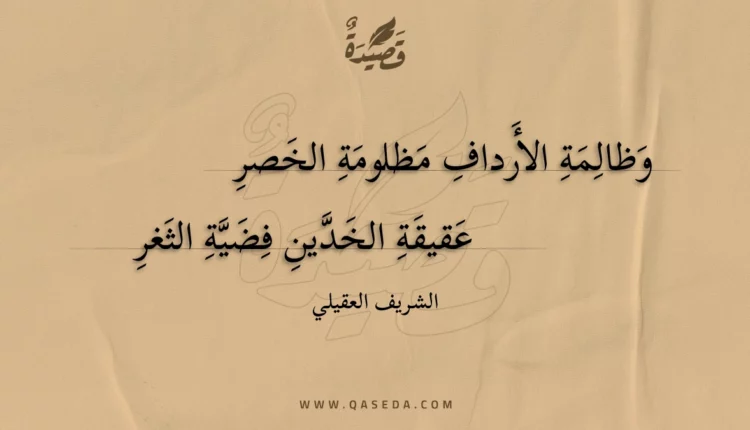 قَصِيدَةٌ
وَظالِمَةِ الأَردافِ مَظلومَةِ الخَصرِ
عَقيقَةِ الخَدَّينِ فِضَيَّةِ الثَغرِ
الشريف العقيلي
WWW.QASEDA.COM